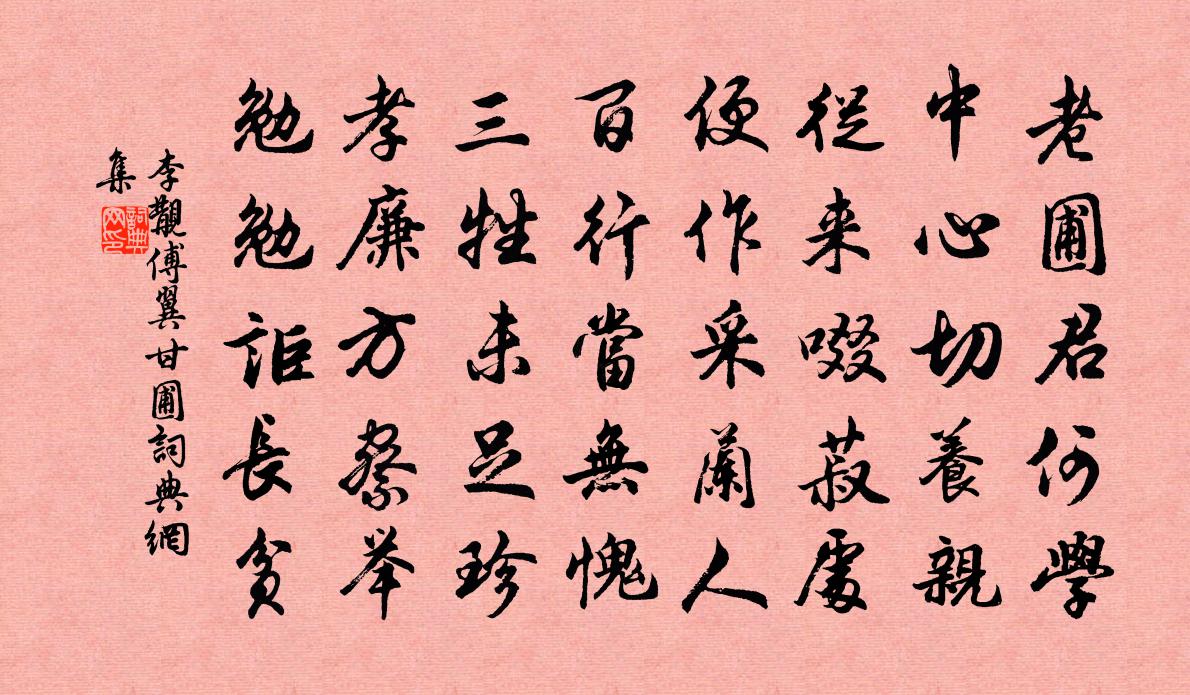 老圃君何學
中心切養親
從来啜菽處
便作采蘭人
百行當無愧
三牲未足珍
孝廉方察举
勉勉詎長貧
李覯傅翼甘圃詞典網
集
詞典
网印